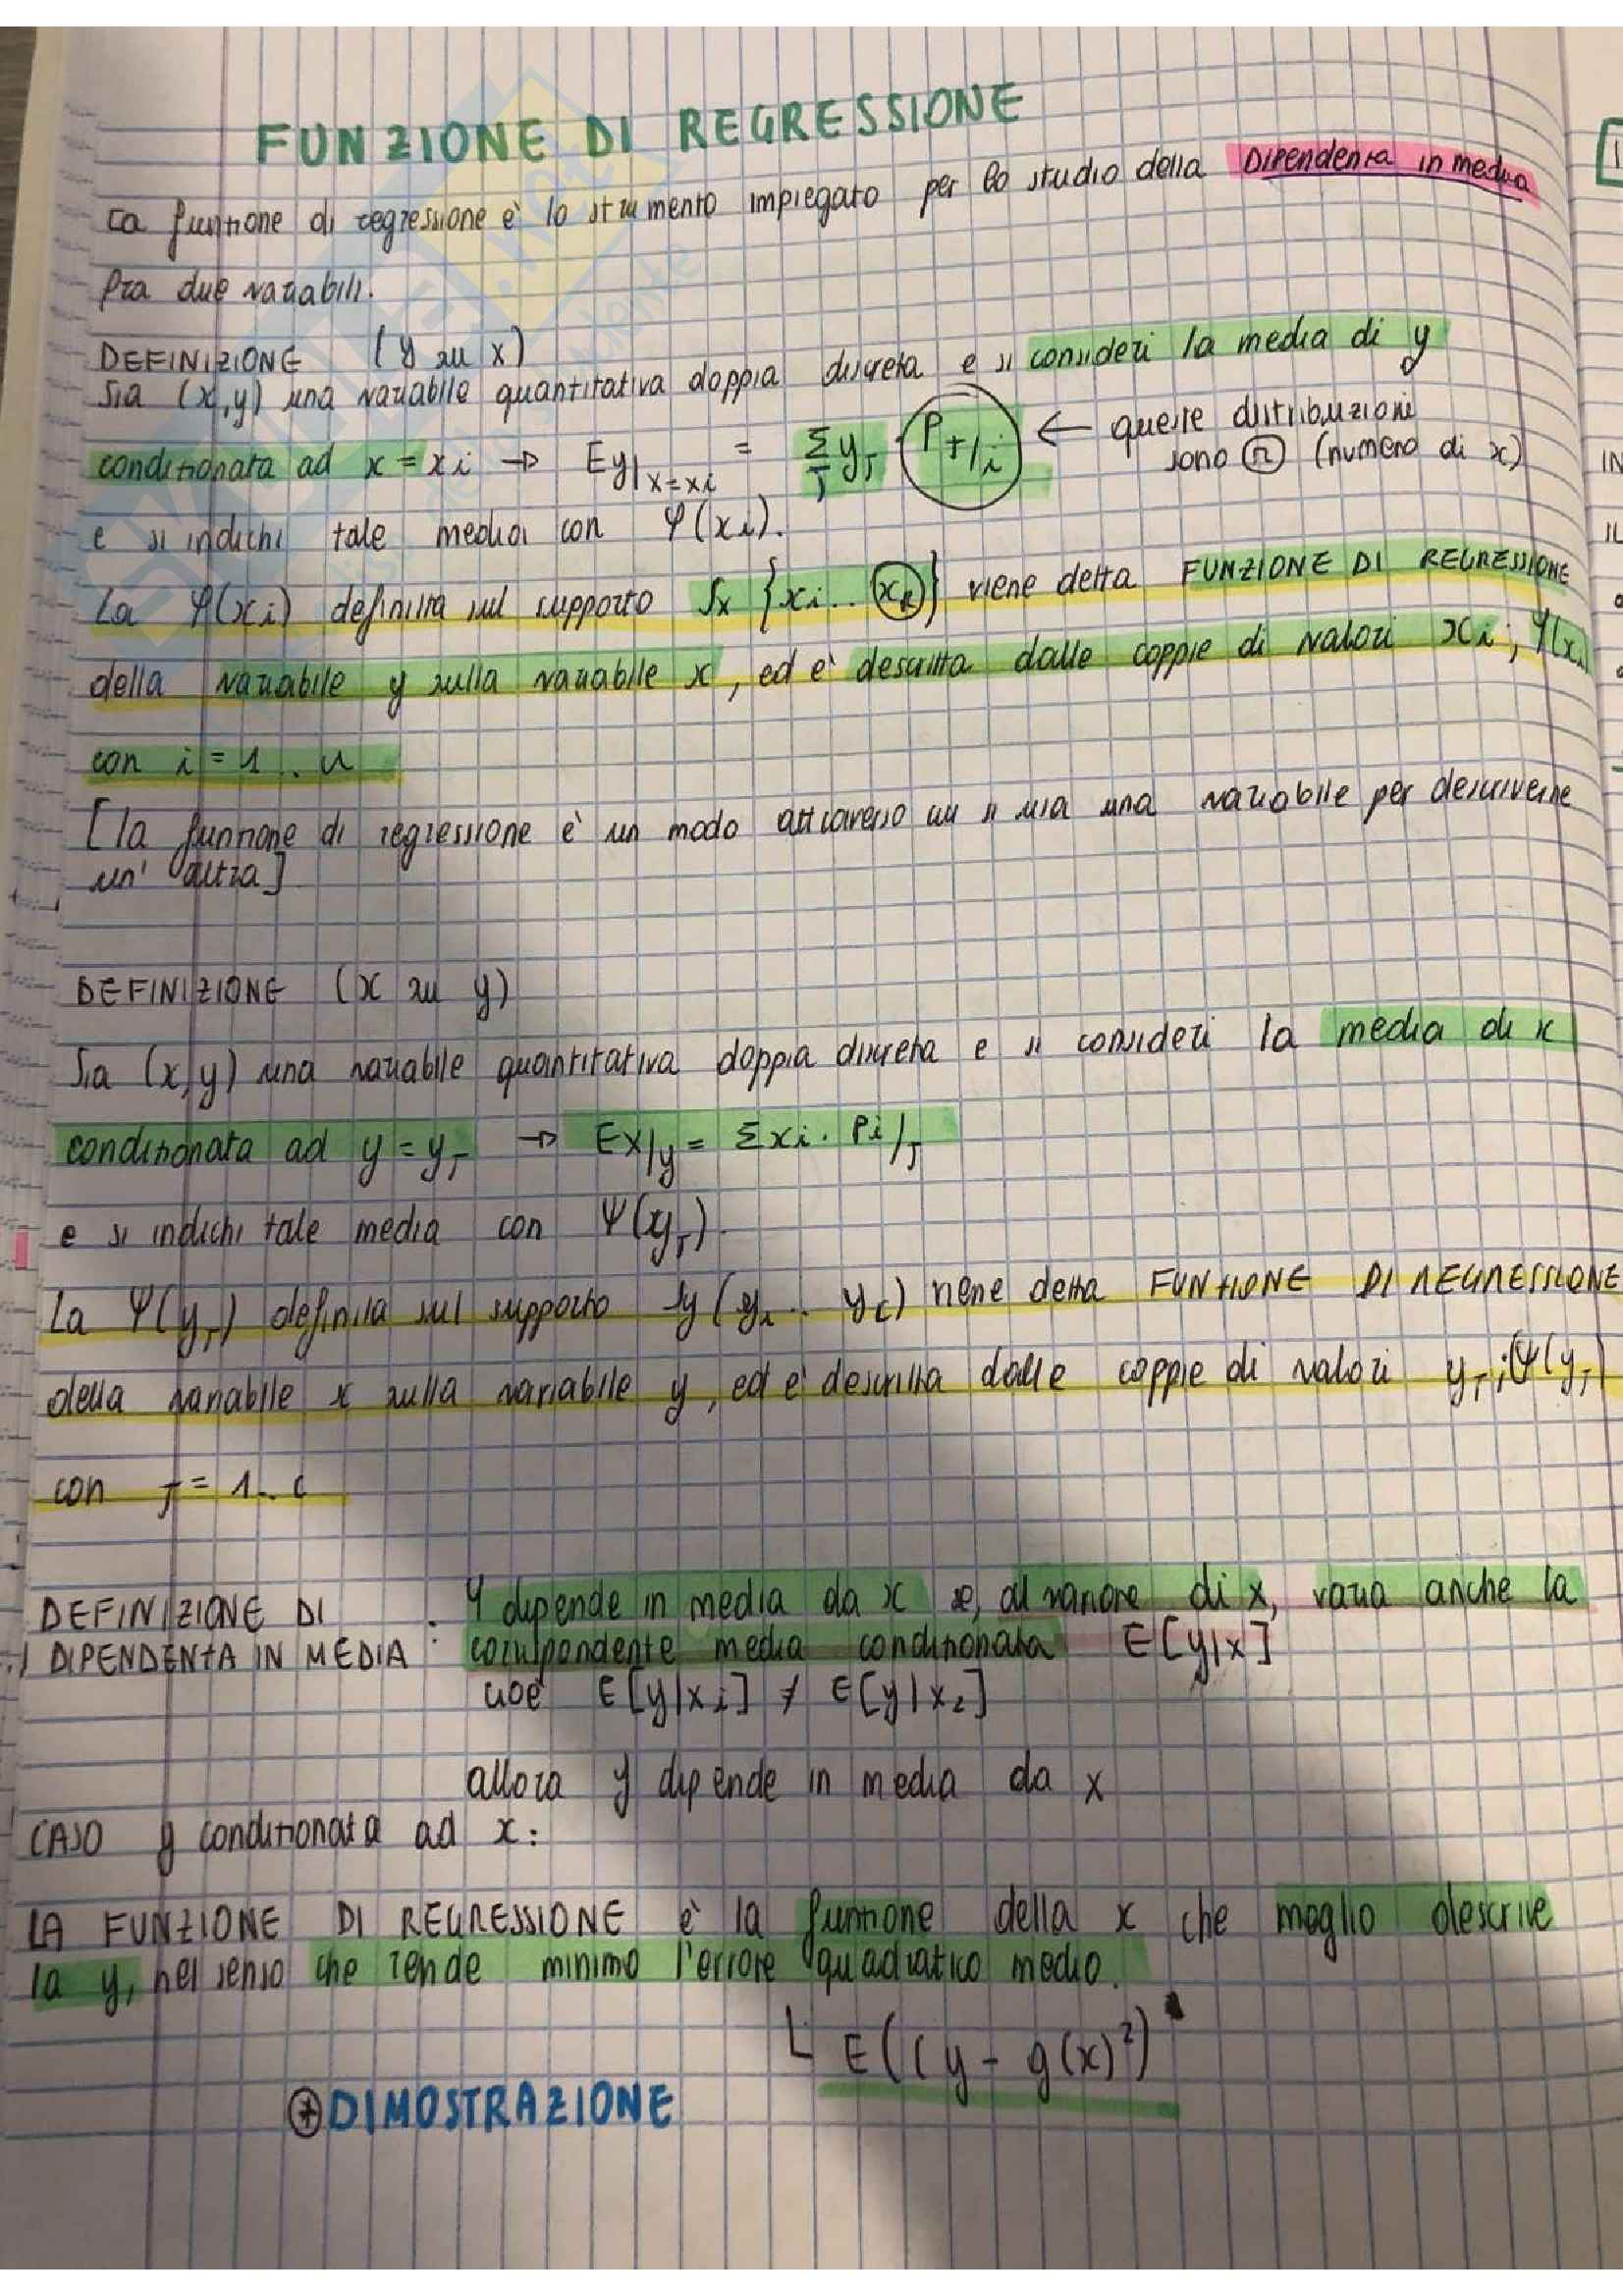 FUNZIONE DI REGRESSIONE
La funzione di regressione è lo strumento impiegato per lo studio della Dipendenza in media
fra due variabili.
DEFINIZIONE (y su x)
Sia (x,y) una variabile quantitativa doppia discreta e si consideri la media di y
condizionata ad x = xi → Ey|x=xi = Σj yj · Pj/i ← queste distribuzioni
sono r (numero di x)
e si indichi tale media con φ(xi).
La φ(xi) definita sul supporto Sx {xi .. xr} viene detta FUNZIONE DI REGRESSIONE
della variabile y sulla variabile x, ed è descritta dalle coppie di valori xi; φ(xi
con i = 1 .. r
[la funzione di regressione è un modo attraverso cui si usa una variabile per descriverne
un'altra]
DEFINIZIONE (x su y)
Sia (x,y) una variabile quantitativa doppia discreta e si consideri la media di x
condizionata ad y = yj → Ex/y = Σxi · Pi/j
e si indichi tale media con Ψ(yj).
La Ψ(yj) definita sul supporto Sy (y1 .. yc) viene detta FUNZIONE DI REGRESSIONE
della variabile x sulla variabile y, ed è descritta dalle coppie di valori yj; Ψ(yj)
con j = 1.. c
DEFINIZIONE DI DIPENDENZA IN MEDIA : Y dipende in media da x se, al variare di x, varia anche la
corrispondente media condizionata E[y|x]
cioè E[y|xi] ≠ E[y|x2]
allora y dipende in media da x
CASO y condizionata ad x:
LA FUNZIONE DI REGRESSIONE è la funzione della x che meglio descrive
la y, nel senso che rende minimo l'errore quadratico medio.
E((y - g(x)²)
* DIMOSTRAZIONE